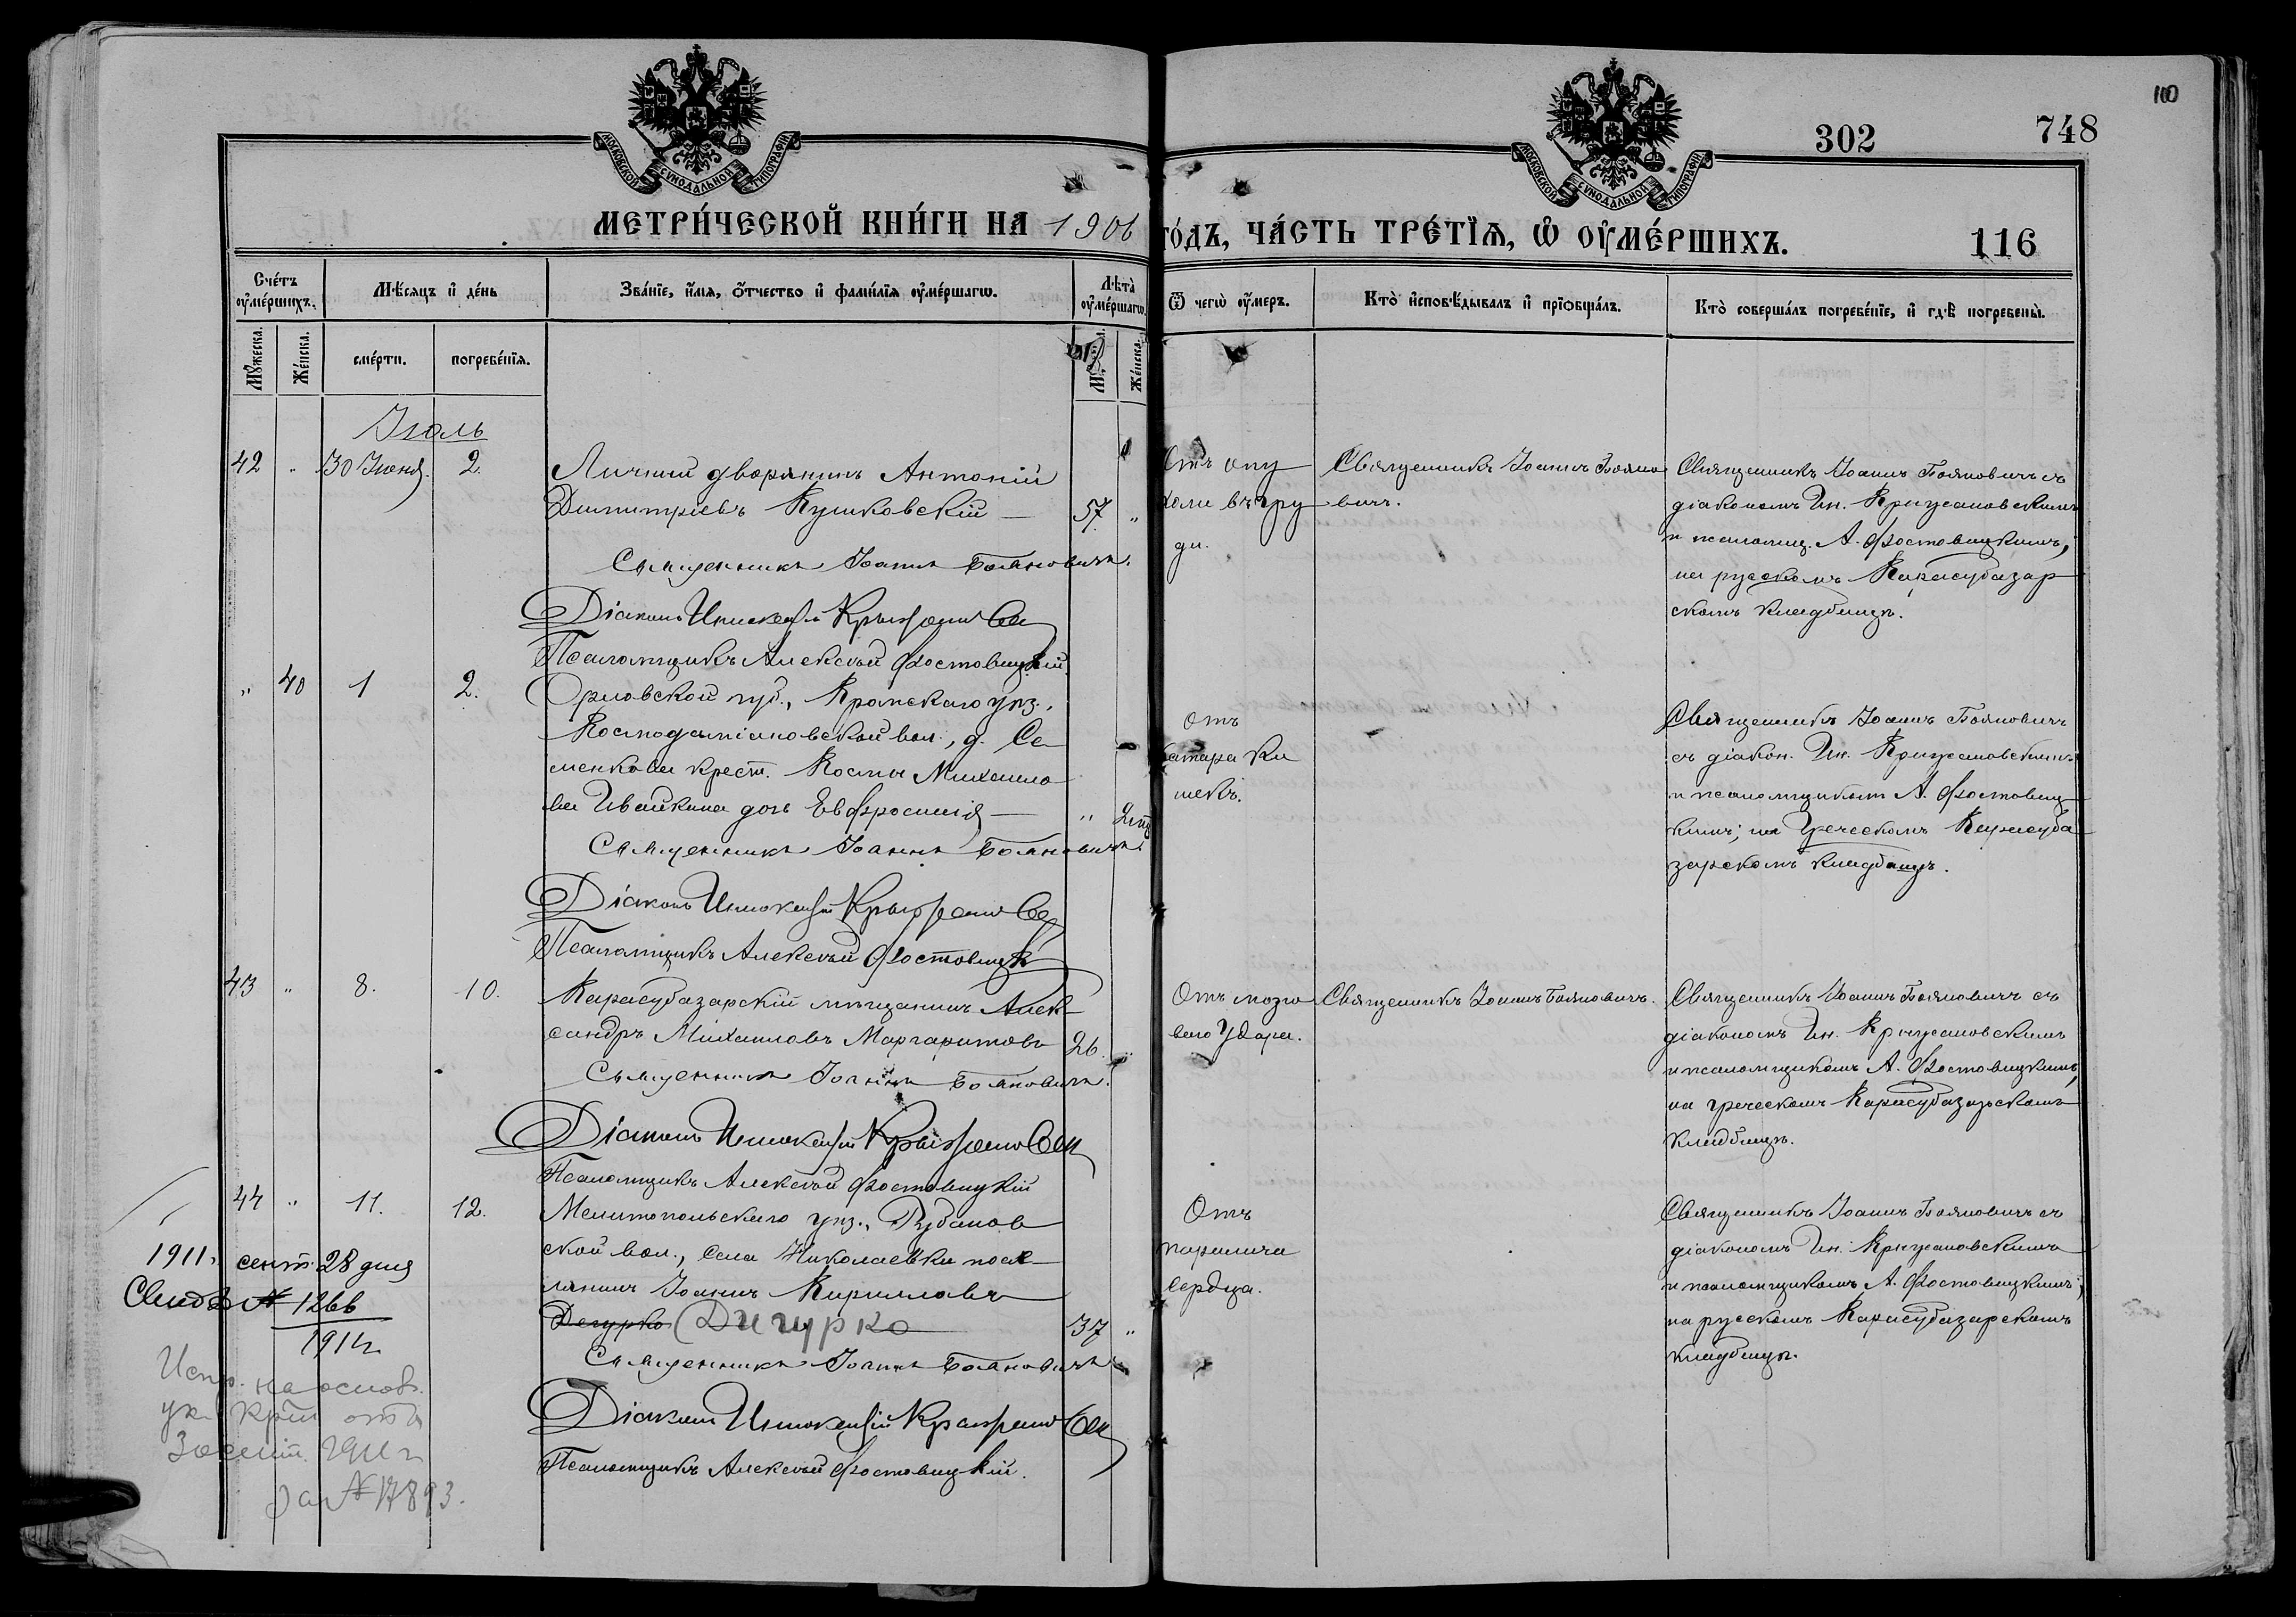 100
302
748
МОСКОВСКОЙ СѴНОДАЛЬНОЙ ТИПОГРАФІИ
МОСКОВСКОЙ СѴНОДАЛЬНОЙ ТИПОГРАФІИ
МЕТРИ́ЧЕСКОЙ КНИ́ГИ НА 1906
ГО́ДЪ, ЧА́СТЬ ТРЕ́ТЇѦ, Ѽ ОУ҆МЕ́РШИХЪ.
116
Сче́тъ оу҆ме́ршихъ.
Мѣ́сяцъ и҆ де́нь
Зва́нїе, и҆́мя, ѻ҆́тчество и҆ фами́лїя оу҆ме́ршагѡ.
Лѣта̀ оу҆ме́ршагѡ.
Ѿ чегѡ̀ оу҆́меръ.
Кто̀ и҆сповѣ́дывалъ и҆ прїѡбща́лъ.
Кто̀ соверша́лъ погребе́нїе, и҆ гдѣ̀ погребены̀.
Мꙋ́жеска.
Же́нска.
сме́рти.
погребе́нїя.
М
Же́нска.
Іюль
42 " 30 Іюня. 2.
Личный дворянинъ Антоній
Димитріевъ Кушковскій — 57. "
Священникъ Іоаннъ Бояновичъ.
Діаконъ Иннокентій Крыжановскій
Псаломщикъ Алексѣй Фостовицкій
Отъ опу
холи въ гру
ди.
Священникъ Іоаннъ Бояно
вичъ.
Священникъ Іоаннъ Бояновичъ съ
діакономъ Ин. Крыжановскимъ
и псаломщ. А. Фостовицкимъ,
на русскомъ Карасубазар
скомъ кладбищѣ.
" 40 1 2.
Орловской губ., Кромскаго уѣз.,
Космодаміановской вол., д. Се
менкова крест. Космы Михаило
ва Ивайкина дочь Евфросинія — " 2 мѣ
Священникъ Іоаннъ Бояновичъ
Діаконъ Иннокентій Крыжановскій
Псаломщикъ Алексѣй Фостовицкій
Отъ
катара ки
шекъ.
Священникъ Іоаннъ Бояновичъ
съ діакон. Ин. Крыжановскимъ
и псаломщикомъ А. Фостовиц
кимъ; на Греческомъ Карасуба
зарскомъ кладбищѣ.
43 " 8. 10.
Карасубазарскій мѣщанинъ Алек
сандръ Михаиловъ Маргаритовъ 26. "
Священникъ Іоаннъ Бояновичъ.
Діаконъ Иннокентій Крыжановскій
Псаломщикъ Алексѣй Фостовицкій
Отъ мозго
ваго удара.
Священникъ Іоаннъ Бояновичъ.
Священникъ Іоаннъ Бояновичъ съ
діакономъ Ин. Крыжановскимъ
и псаломщикомъ А. Фостовицкимъ,
на греческомъ Карасубазарскомъ
кладбищѣ.
44 " 11. 12.
Мелитопольскаго уѣз., Рубанов
ской вол., села Николаевки посе
лянинъ Іоаннъ Кирилловъ
Дегурко (Дигурко 37 "
Священникъ Іоаннъ Бояновичъ
Діаконъ Иннокентій Крыжановскій
Псаломщикъ Алексѣй Фостовицкій.
Отъ
паралича
сердца.
Священникъ Іоаннъ Бояновичъ съ
діакономъ Ин. Крыжановскимъ
и псаломщикомъ А. Фостовицкимъ;
на русскомъ Карасубазарскомъ
кладбищѣ.
1911г. сент. 28 дня
Свид. № 1266
1911г.
Испр. на основ.
ук. отъ
1911 г.
за № 17893.